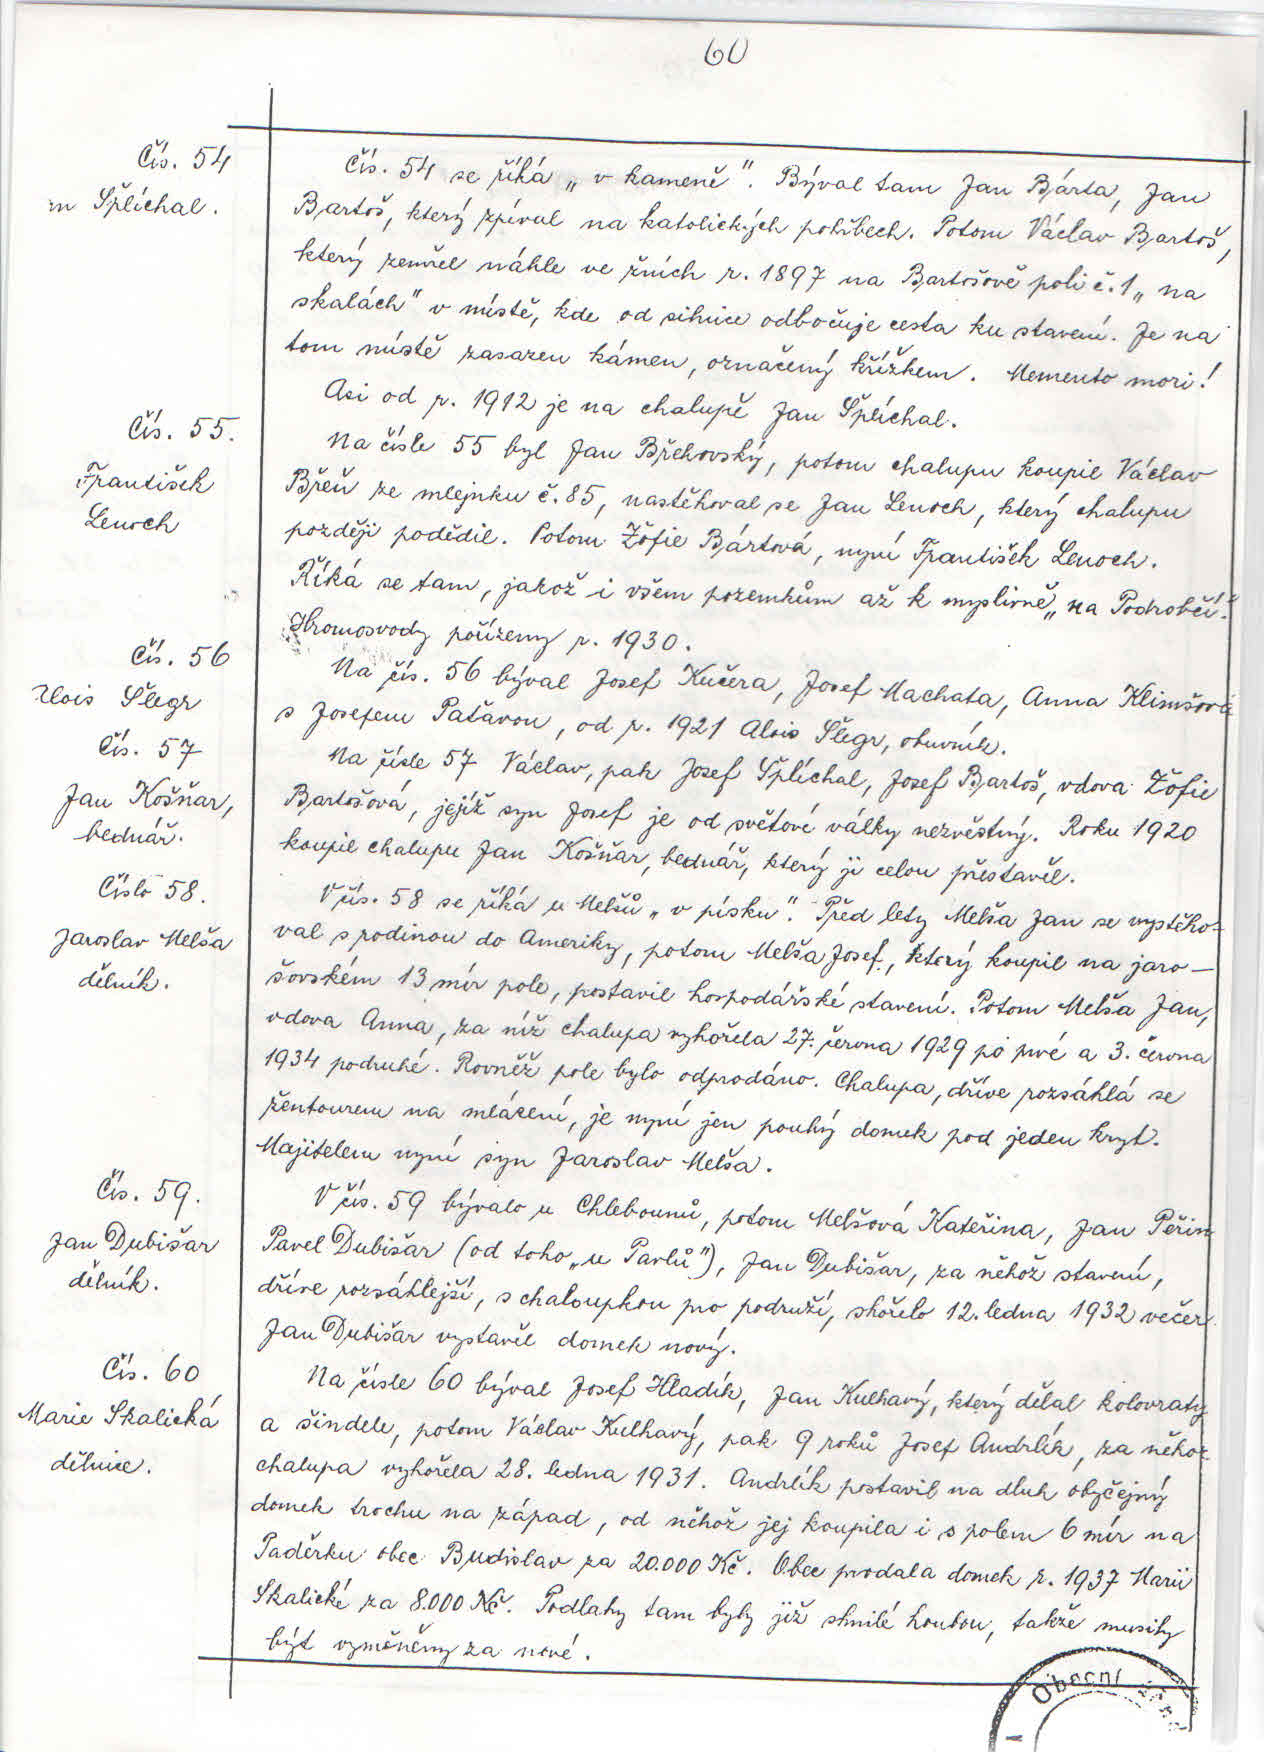 60
Čís. 54
Šplíchal.
Čís. 54 se říká „ v kameně". Býval tam Jan Bárta, Jan
Bartoš, který zpíval na katolických pohřbech. Potom Václav Bartoš,
který zemřel náhle ve žních r. 1897 na Bartošově poli č. 1 „ na
skalách" v místě, kde od silnice odbočuje cesta ku stavení. Je na
tom místě zasazen kámen, označený křížkem. Memento mori!
Asi od r. 1912 je na chalupě Jan Šplíchal.
Čís. 55.
František
Lenoch
Na čísle 55 byl Jan Břehovský, potom chalupu koupil Václav
Břeň ze mlejnku č. 85, nastěhoval se Jan Lenoch, který chalupu
později podědil. Potom Žofie Bártová, nyní František Lenoch.
Říká se tam, jakož i všem pozemkům až k myslivně „ na Podrobčí".
Hromosvody pořízeny r. 1930.
Čís. 56
Alois Šlegr
Na čís. 56 býval Josef Kučera, Josef Machata, Anna Klimšová
s Josefem Paťavou, od r. 1921 Alois Šlegr, obuvník.
Čís. 57
Jan Košňar,
bednář.
Na čísle 57 Václav, pak Josef Šplíchal, Josef Bartoš, vdova Žofie
Bartošová, jejíž syn Josef je od světové války nezvěstný. Roku 1920
koupil chalupu Jan Košňar, bednář, který ji celou přestavěl.
Číslo 58.
Jaroslav Melša
dělník.
V čís. 58 se říká u Melšů „ v písku". Před lety Melša Jan se vystěho-
val s rodinou do Ameriky, potom Melša Josef, který koupil na jaro-
šovském 13 mír pole, postavil hospodářské stavení. Potom Melša Jan,
vdova Anna, za níž chalupa vyhořela 27. června 1929 po prvé a 3. června
1934 podruhé. Rovněž pole bylo odprodáno. Chalupa, dříve rozsáhlá se
žentourem na mlácení, je nyní jen pouhý domek pod jeden kryt.
Majitelem nyní syn Jaroslav Melša.
Čís. 59.
Jan Dubišar
dělník.
V čís. 59 bývalo u Chlebounů, potom Melšová Kateřina, Jan Peřin
Pavel Dubišar (od toho „u Pavlů"), Jan Dubišar, za něhož stavení,
dříve rozsáhlejší, s chaloupkou pro podruží, shořelo 12. ledna 1932 večer.
Jan Dubišar vystavěl domek nový.
Čís. 60
Marie Skalická
dělnice.
Na čísle 60 býval Josef Hladík, Jan Kulhavý, který dělal kolovraty
a šindele, potom Václav Kulhavý, pak 9 roků Josef Andrlík, za něhož
chalupa vyhořela 28. ledna 1931. Andrlík postavil na dluh obyčejný
domek trochu na západ, od něhož jej koupila i s polem 6 mír na
Paděrku obec Budislav za 20.000 Kč. Obec prodala domek r. 1937 Marii
Skalické za 8.000 Kč. Podlahy tam byly již shnilé houbou, takže musily
být vyměněny za nové.
Obecní